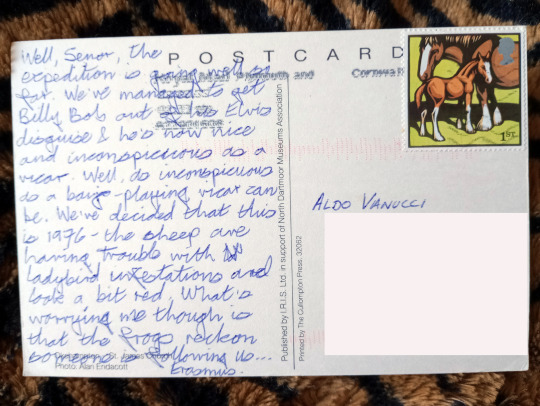 POSTCARD
Well, Senor, the
expedition is going well so
far. We've managed to get
Billy Bob out of his Elvis
disguise & he's now nice
and inconspicuous as a
vicar. Well, as inconspicuous
as a banjo-playing vicar can
be. We've decided that this
is 1976 - the sheep are
having trouble with
ladybird infestations and
look a bit red. What's
worrying me though is
that the frogs reckon
someone is following us...
Erasmus.
St. James
Photo: Alan Endacott
Royal Mail Plymouth and Cornwall
Published by I.R.I.S. Ltd. in support of North Dartmoor Museums Association
Printed by The Cullompton Press, 32082
1st
ALDO VANUCCI